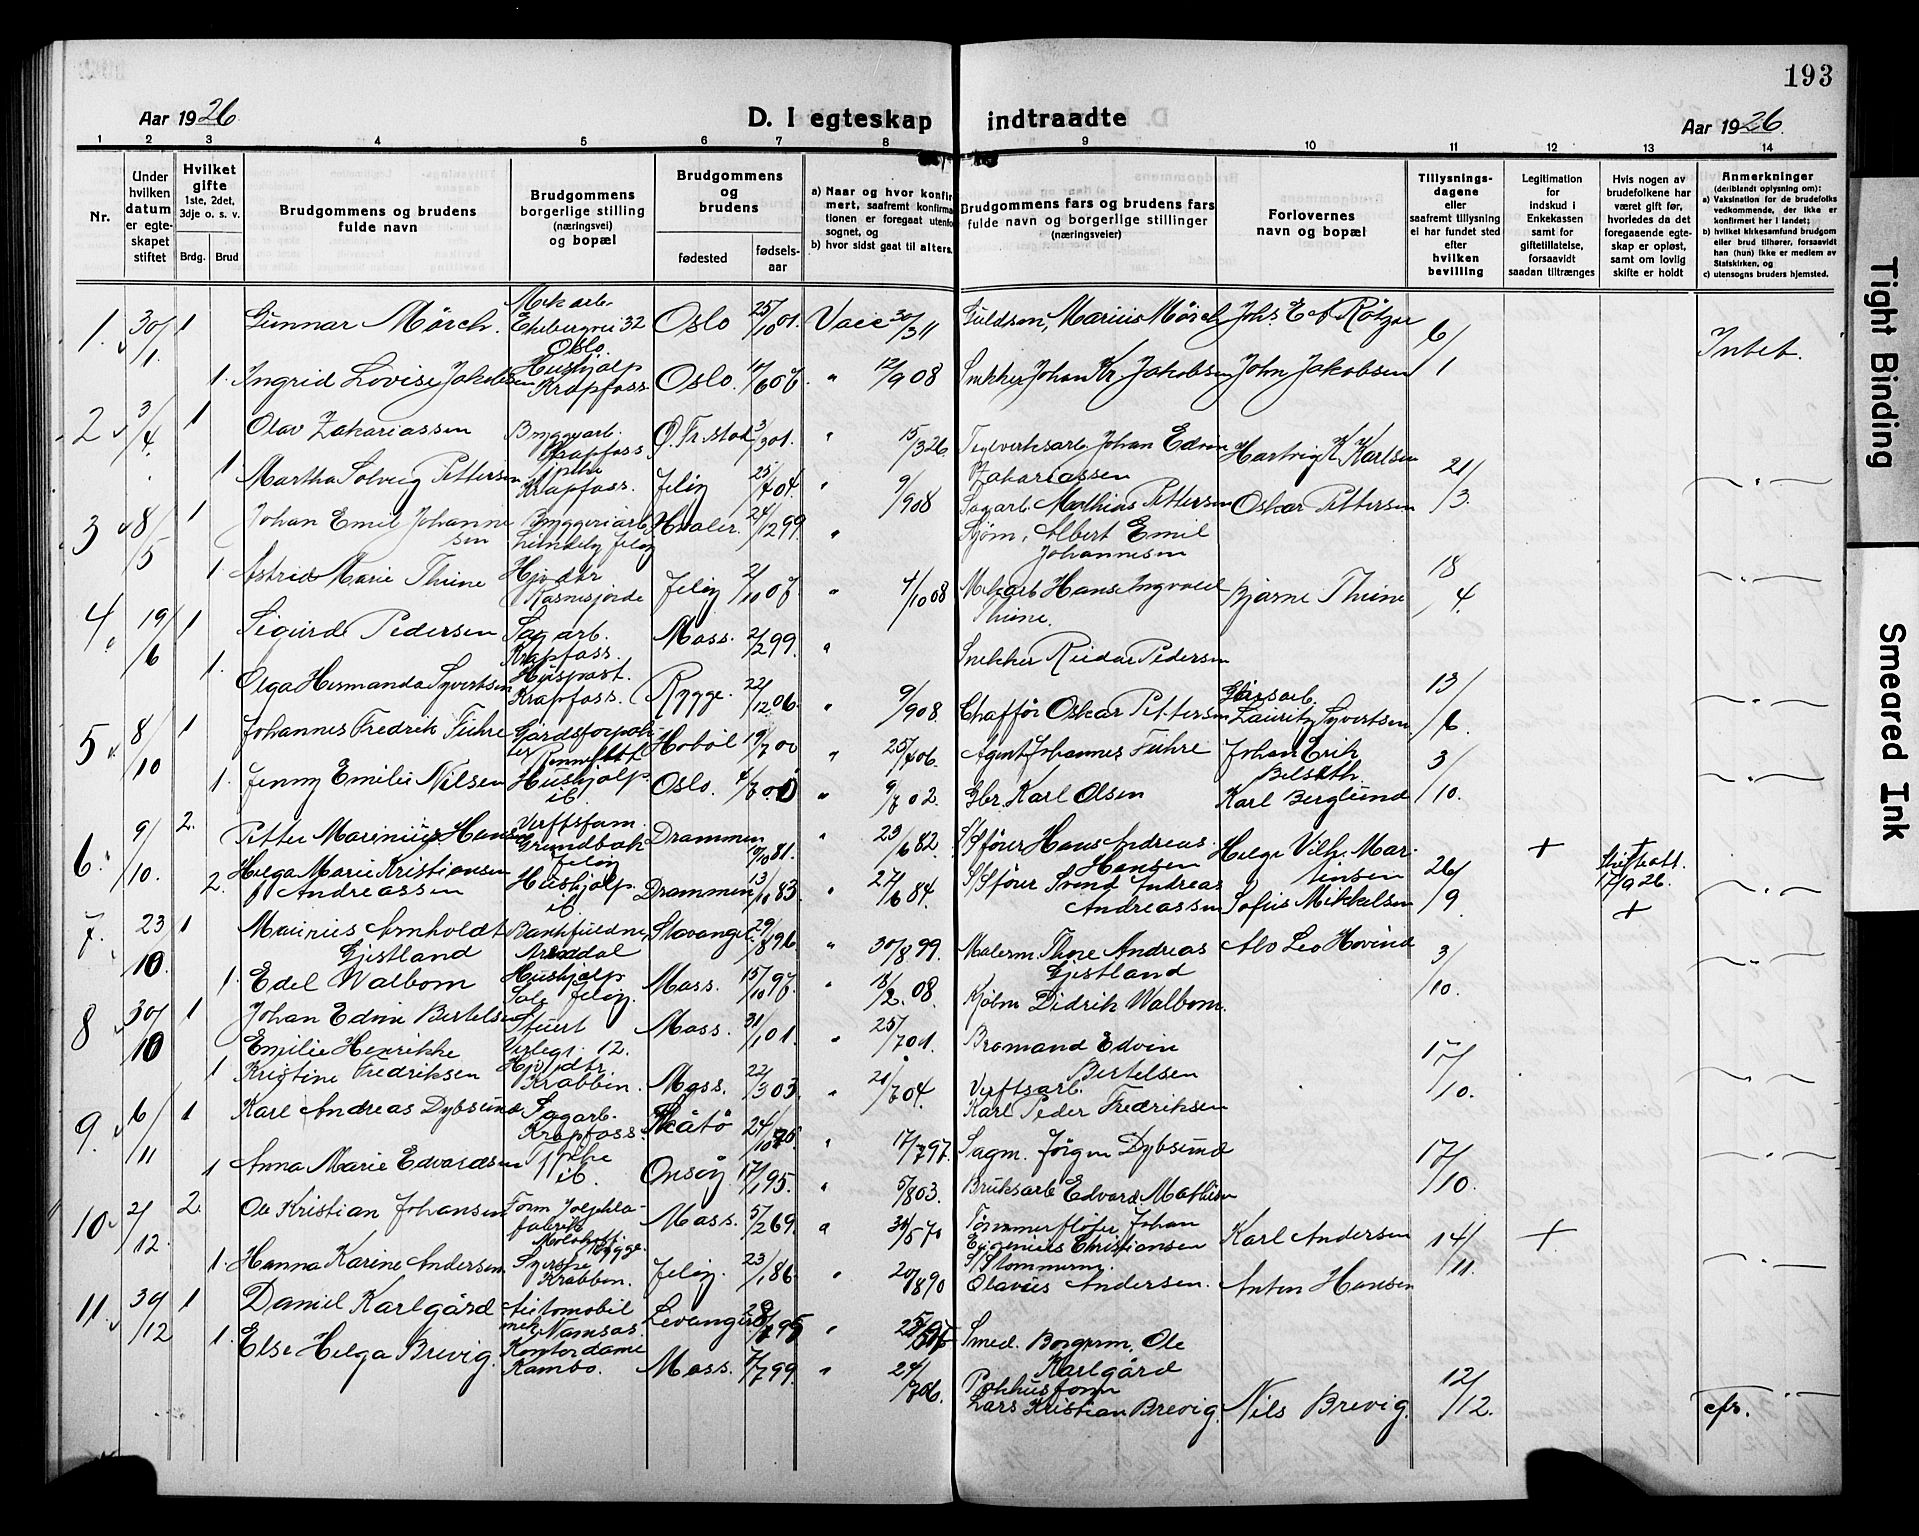 193
Aar 1926
D. I egteskap indtraadte
Aar 1926.
1 2 3 4 5 6 7 8 9 10 11 12 13 14
Nr.
Under hvilken datum er egteskapet stiftet
Hvilket gifte 1ste, 2det, 3dje o. s. v.
Brdg. Brud
Brudgommens og brudens fulde navn
Brudgommens borgerlige stilling (næringsvei) og bopæl
Brudgommens og brudens
fødested
fødselsaar
a) Naar og hvor konfirmert, saafremt konfirmationen er foregaat utenfor sognet, og
b) hvor sidst gaat til alters.
Brudgommens fars og brudens fars fulde navn og borgerlige stillinger (næringsveier)
Forlovernes navn og bopæl
Tillysningsdagene eller saafremt tillysning ei har fundet sted efter hvilken bevilling
Legitimation for indskud i Enkekassen samt for giftetillatelse, forsaavidt saadan tiltrænges
Hvis nogen av brudefolkene har været gift før, hvorledes da det foregaaende egteskap er opløst, samt om lovlig skifte er holdt
Anmerkninger (deriblandt oplysning om):
a) Vaksination for de brudefolks vedkommende, der ikke er konfirmert her i landet;
b) hvilket kirkesamfund brudgom eller brud tilhører, forsaavidt han (hun) ikke er medlem av Statskirken, og
c) utensogns bruders hjemsted.
1. 30/1. 1 Gunnar Mörch. Mek arb Ekebergvei 32 Oslo. Oslo 25/10 01. Vacc 30/3 11 Guldsm, Marius Mörch Johs. E. Rötzer 6/1 Intet.
1. Ingrid Lovise Jakobsen Hushjælp Krapfoss Oslo. " 12/9 08 Snekker Johan Kr. Jakobsen John Jakobsen
2 3/4. 1 Olav Zakariassen Bryggearb. Krapfoss. Ø. Fr.stad 3/3 01. " 15/3 26. Teglverksarb Johan Edvin Zakariassen Hartvig K. Karlsen 21/3.
1. Martha Solveig Pettersen Krapfoss. Jelöy 25/7 04. " 9/9 08 Sagarb Mathias Pettersen Oskar Pettersen
3 8/5 1 Johan Emil Johannesen Bryggeriarb. Lindeby Jelöy Hvaler. 24/12 99. " Sjöm, Albert Emil Johannesen 18/4.
1. Astrid Marie Thune Hjv dtr Jelöy 21/10 07 " 4/10 08 Mekarb Hans Ingvald Thune. Bjarne Thune
4. 19/6 1. Sigurd Pedersen Sagarb. Krapfoss. Moss. 2/2 99. " Snekker Reidar Pedersen 13/6
1. Olga Hermanda Syvertsen Huspost. Krapfoss. Rygge. 22/12 06. " 9/9 08. Chafför Oskar Pettersen Lauritz Syvertsen
5 8/10 1 Johannes Fredrik Fuhre Gårdsforpakter Hoböl 19/7 00 " 25/7 06. Agent Johannes Fuhre Johan Erik Belseth 3/10.
1. Jenny Emilie Nilsen Hushjælp. ib. Oslo. 4/7 00 " 9/7 02. Gbr. Karl Olsen Karl Berglund
6. 9/10. 2. Petter Marenius Hansen Verftsform. Grundbak Jelöy Drammen 10/10 81. " 23/6 82 S/Sförer Hans Andreas Hansen Helge Vilh. Marinsen 26/9. +
17/9 26.
2. Helga Marie Kristiansen f. Andreassen Hushjælp. ib. Drammen 13/10 83 " 27/6 84. S/Sförer Svend Andreas Andreassen Sofus Mikkelsen +
7. 23/10. 1 Maurius Arnholdt Gjestland Arendal Stavanger 29/8 96 " 30/8 99. Malerm. Thore Andreas Gjestland Alv Leo Hovind 3/10.
1. Edel Walbom Hushjælp Jelöy. Moss. 15/10 97 " 18/2. 08. Kjöbm Didrik Walbom.
8 30/10 1 Johan Edvin Bertelsen Stuert Verlegt. 12. Moss. 31/1 01. " 25/7 01. Bromand Edvin Bertelsen 17/10.
1 Emilie Henrikke Kristine Fredriksen Hjv. dtr. Krabben. Moss. 22/3 03 " 21/7 04. Verftsarb. Karl Peder Fredriksen
9. 6/11 1 Karl Andreas Dybsund Sagarb. Krapfoss. Skåtö 24/10 75 " 17/7 97. Sagm. Jörgen Dybsund 17/10.
1 Anna Marie Edvardsen ib. Onsöy 17/1 95. " 5/8 03. Bruksarb Edvard Mathisen
10. 2/12. 2. Ole Kristian Johansen Moss. 5/2 69. " 30/5 70 Tömmerfløter Johan Eugenius Christiansen Karl Andersen 14/11. +
1. Hanna Karine Andersen Syerske Krabben. Jelöy. 23/1 86. " 20/8 90 S/Stömmerm. Olavus Andersen. Anton Hansen
11. 30/12 1 Daniel Karlgård Automobilmek. Namsos. Levanger " Smed. Borgerm. Ole Karlgård 12/12. cfr.
1. Else Helga Brevig. Kontordame Kambo. Moss. 7/7 99. " 24/7 06. Pakhusform Lars Kristian Brevig. Nils Brevig.
Tight Binding
Smeared Ink